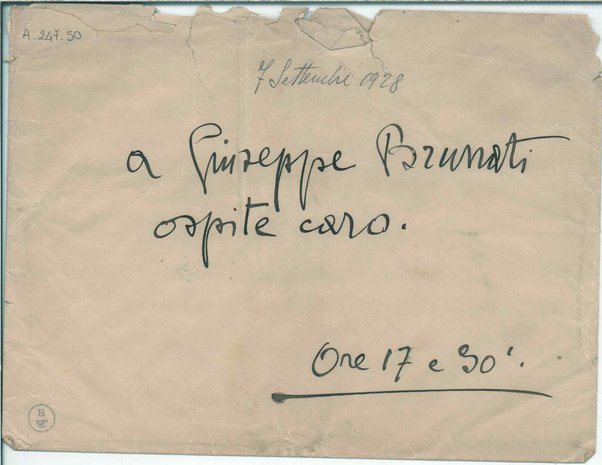 A. 247.50
7 Settembre 1928
a Giuseppe Brunati
ospite caro.
Ore 17 e 30'.
B